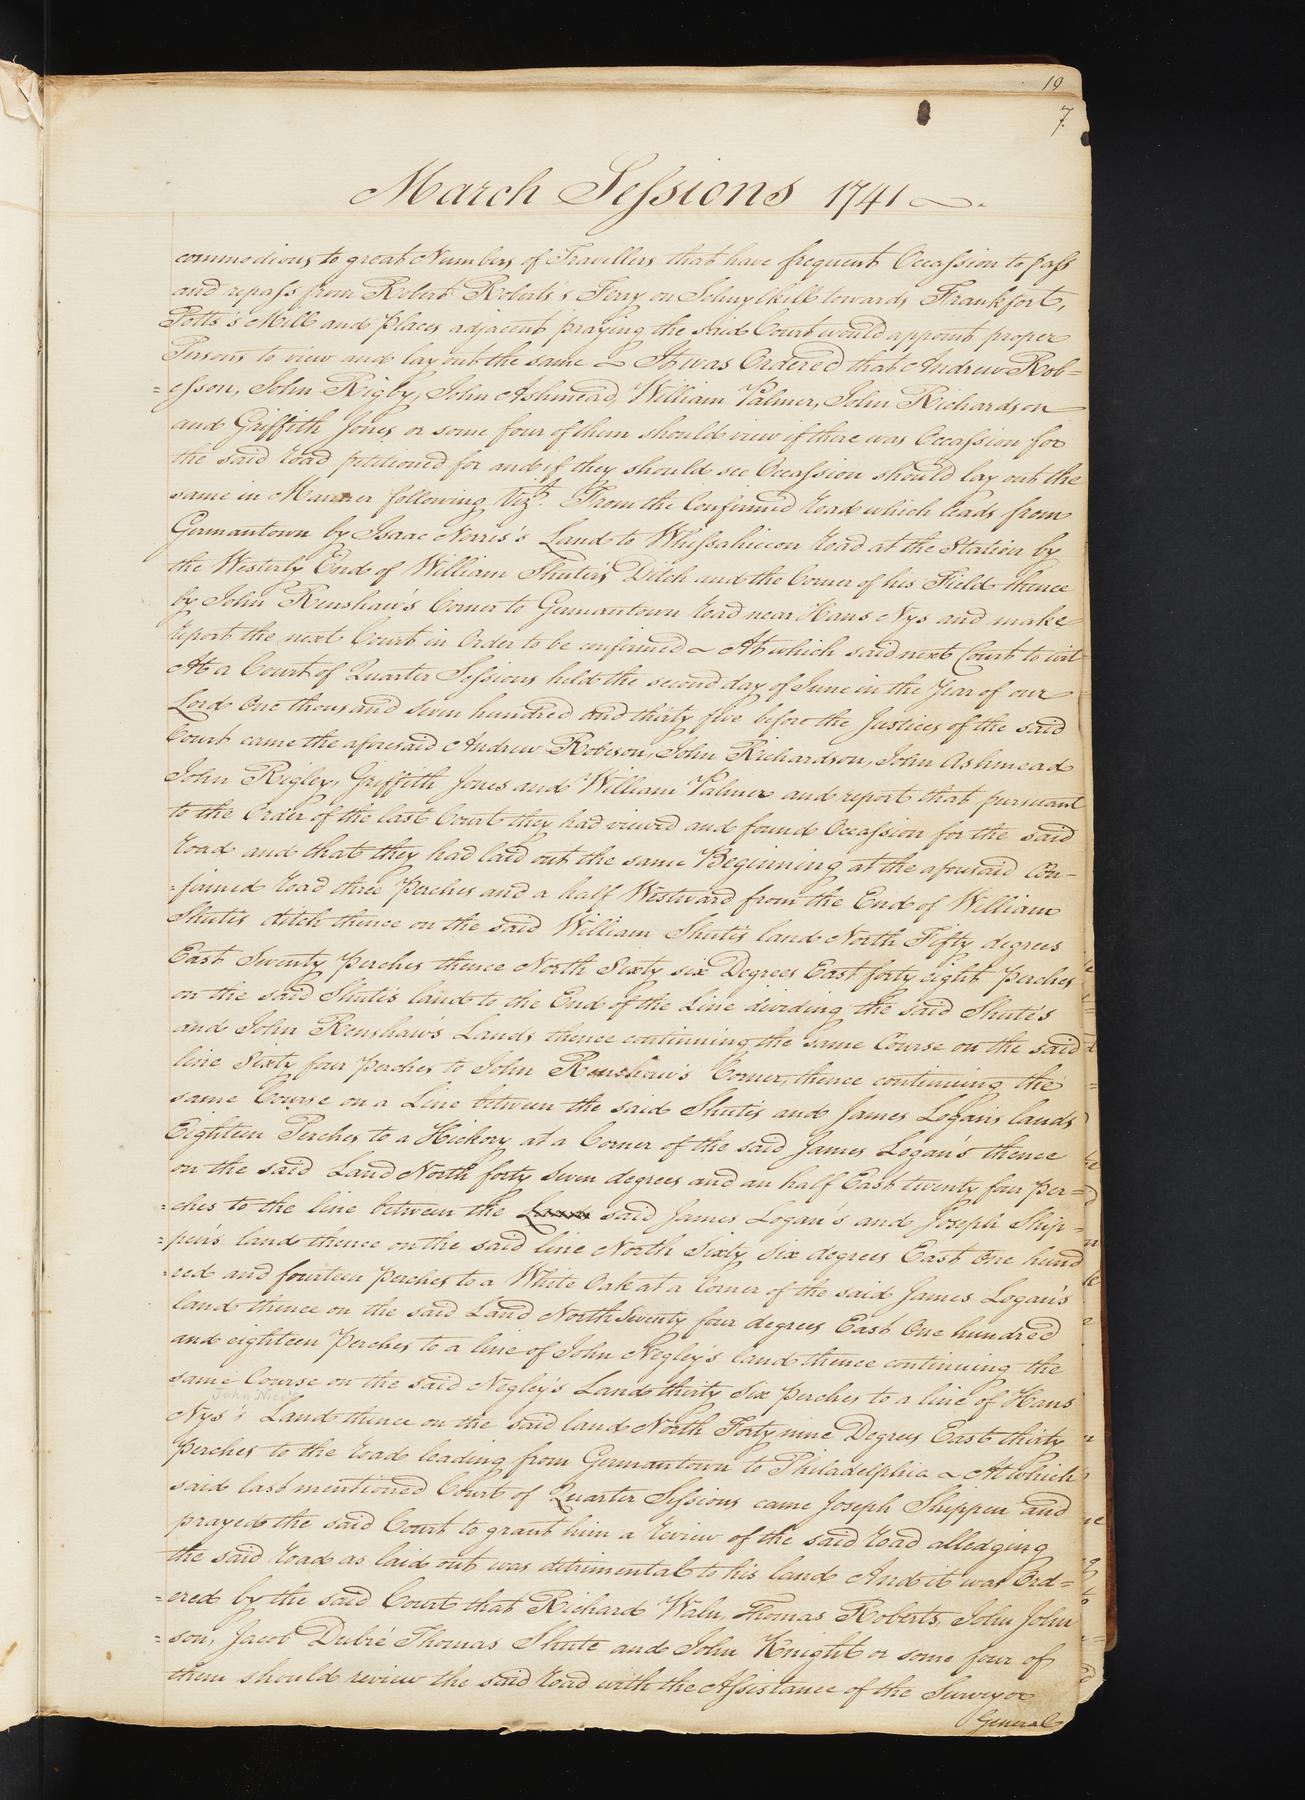 19
7
March Sessions 1741
commodious to great Numbers of Travellers that have frequent Occassion to pass
and repass from Robert Roberts's Ferry on Schuylkill towards Frankfort,
Potts's Mill and places adjacent praying the said Court would appoint proper
Persons to view and lay out the same ~ It was Ordered that Andrew Rob=
=esson, John Rigby, John Ashmead, William Palmer, John Richardson
and Griffith Jones or some four of them should view if there was Occassion for
the said road petitioned for and if they should see Occassion should lay out the
same in Manner following Vizt. From the Confirmed road which leads from
Germantown by Isaac Norris's Land to Whissahiccon road at the Station by
the Westerly End of William Shute's Ditch and the Corner of his Field thence
by John Renshaw's Corner to Germantown road near Hans Nys and make
report the next Court in Order to be confirmed ~ At which said next Court to wit
At a Court of Quarter Sessions held the second day of June in the Year of our
Lord One thousand seven hundred and thirty five before the Justices of the said
Court came the aforesaid Andrew Robeson, John Richardson, John Ashmead
John Rigley, Griffith Jones and William Palmer and report that pursuant
to the Order of the last Court they had viewed and found Occassion for the said
road and that they had laid out the same Beginning at the aforesaid Con-
-firmed road three Perches and a half Westward from the End of William
Shutes ditch thence on the said William Shute's land North Fifty degrees
East Twenty perches thence North Sixty six Degrees East forty eight perches
on the said Shute's land to the End of the Line dividing the said Shute's
and John Renshaw's Lands thence continuing the same Course on the said
line Sixty four perches to John Renshaw's Corner, thence continuing the
same Course on a Line between the said Shute's and James Logan's lands
Eighteen Perches to a Hickory at a Corner of the said James Logan's thence
on the said Land North forty seven degrees and an half East twenty four per=
=ches to the line between the said James Logan's and Joseph Ship=
=pen's land thence on the said line North Sixty six degrees East One hund
=red and fourteen perches to a White Oak at a Corner of the said James Logan's
land thence on the said Land North Seventy four degrees East One hundred
and eighteen Perches to a line of John Negley's land thence continuing the
same Course on the said Negley's Land thirty six perches to a line of Hans
John Nice's
Nys's Land thence on the said land North Forty nine Degrees East thirty
perches to the road leading from Germantown to Philadelphia ~ At which
said last mentioned Court of Quarter Sessions came Joseph Shippen and
prayed the said Court to grant him a review of the said road alledging
the said road as laid out was detrimental to his land And it was Ord=
=ered by the said Court that Richard Waln, Thomas Roberts, John John
=son, Jacob Dubré Thomas Shute and John Knight or some four of
them should review the said road with the Assistance of the Surveyor
General